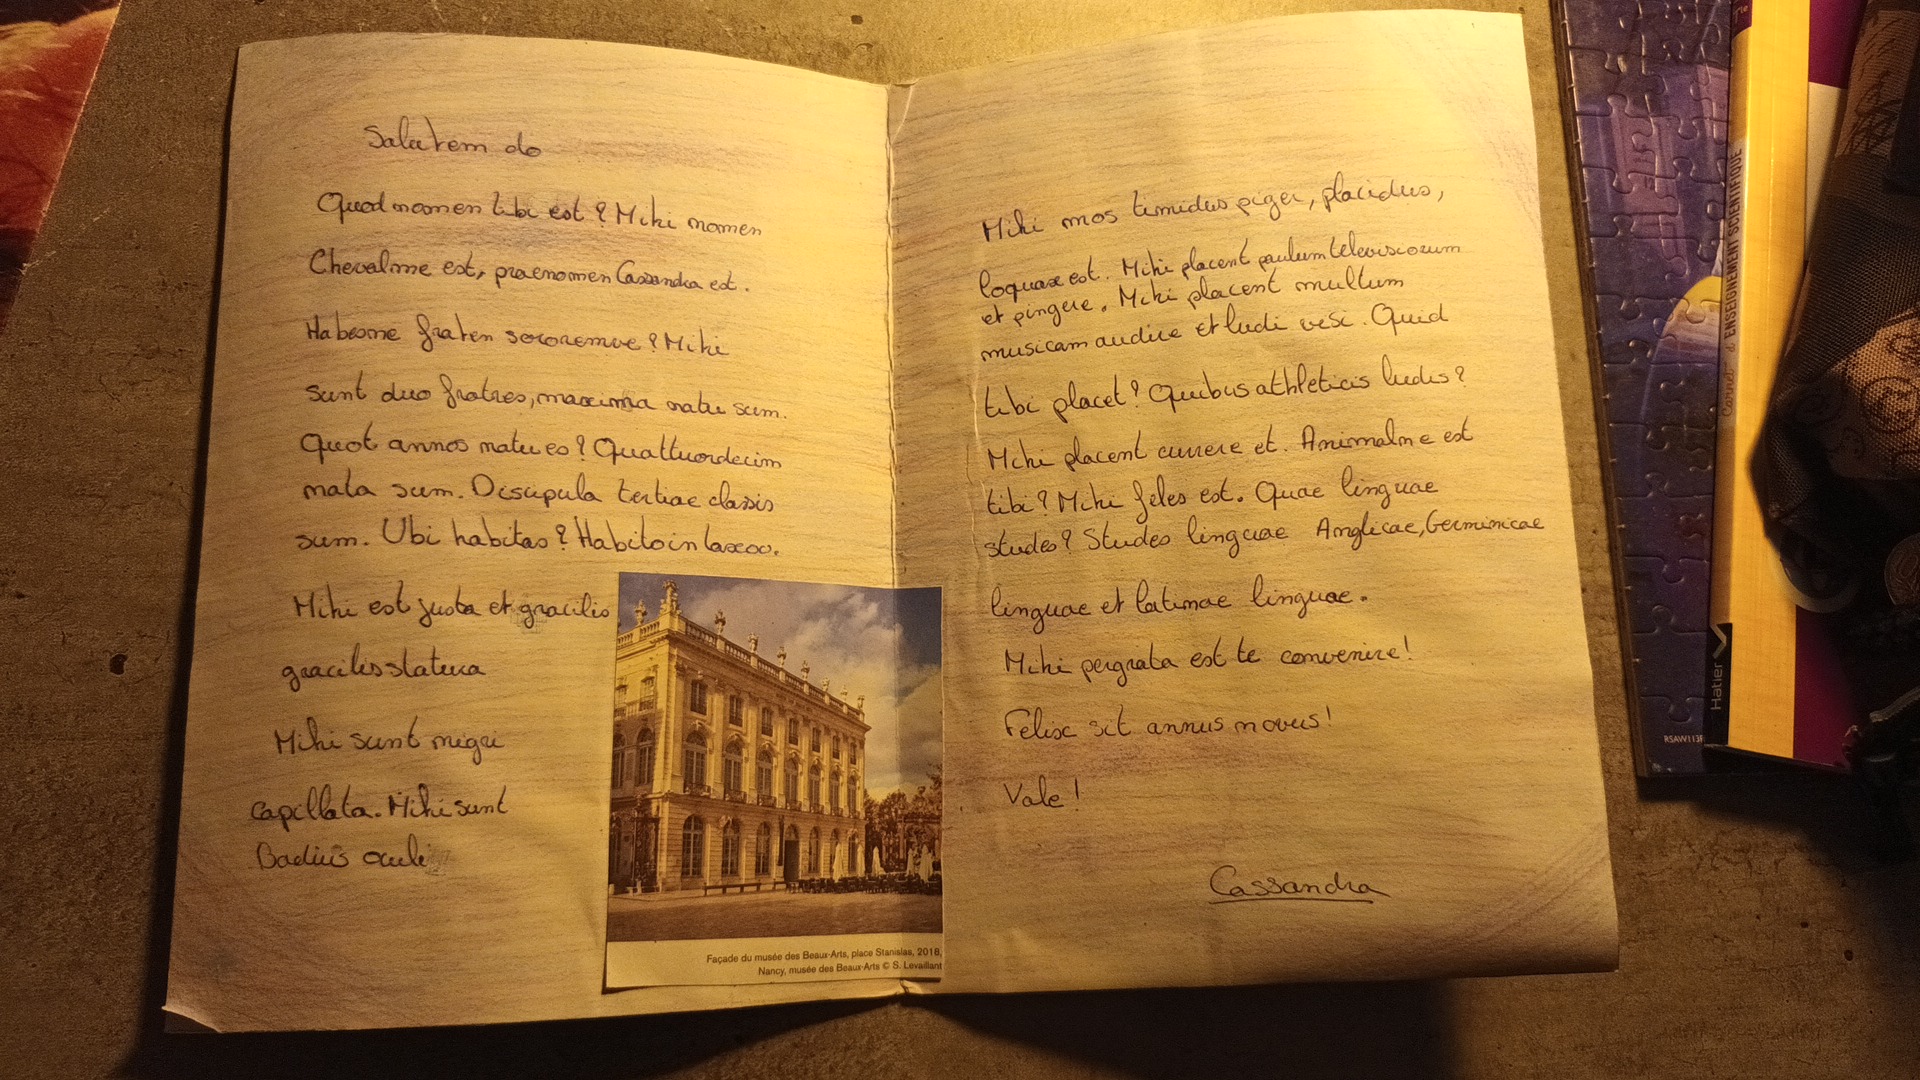 Salutem do
Quod nomen tibi est ? Mihi nomen
Chevalme est, praenomen Cassandra est.
Habesne fraten sororemve ? Mihi
sunt duo fratres, maxima natu sum.
Quot annos natu es ? Quattuordecim
nata sum. Discipula tertiae classis
sum. Ubi habitas ? Habito in laxoo.
Mihi est justa et gracilis
gracilis statura
Mihi sunt nigri
capillata. Mihi sunt
Badius oculi
Façade du musée des Beaux-Arts, place Stanislas, 2018,
Nancy, musée des Beaux-Arts © S. Levaillant
Mihi mos timidus piger, placidus,
loquax est. Mihi placent paulum televisorum
et pingere. Mihi placent multum
musicam audire et ludi visi. Quid
tibi placet ? Quibus athleticis ludis ?
Mihi placent currere et. Animalne est
tibi ? Mihi feles est. Quae linguae
studes ? Studes linguae Anglicae, Germinicae
linguae et latinae linguae.
Mihi pergrata est te convenire !
Felix sit annus novus !
Vale !
Cassandra
Carnet d'ENSEIGNEMENT SCIENTIFIQUE
Hatier
Tle